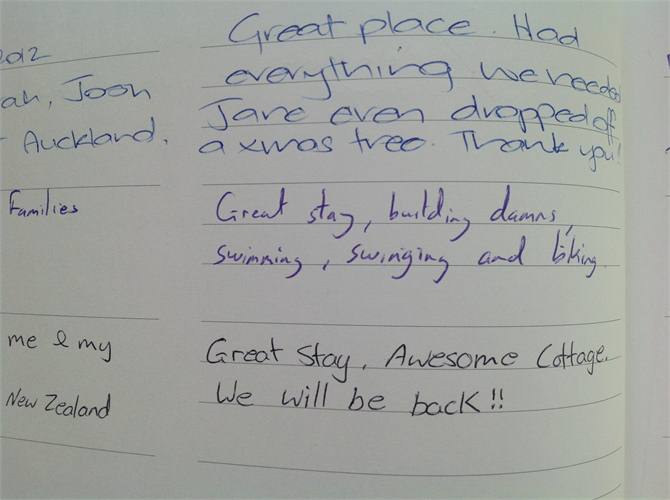 2012
Great place. Had
everything we needed
ah, Josh
Jane even dropped off
Auckland.
a xmas tree. Thank you!
Families
Great stay, building damns,
swimming, swinging and biking.
me & my
Great Stay. Awesome Cottage.
New Zealand
We will be back!!